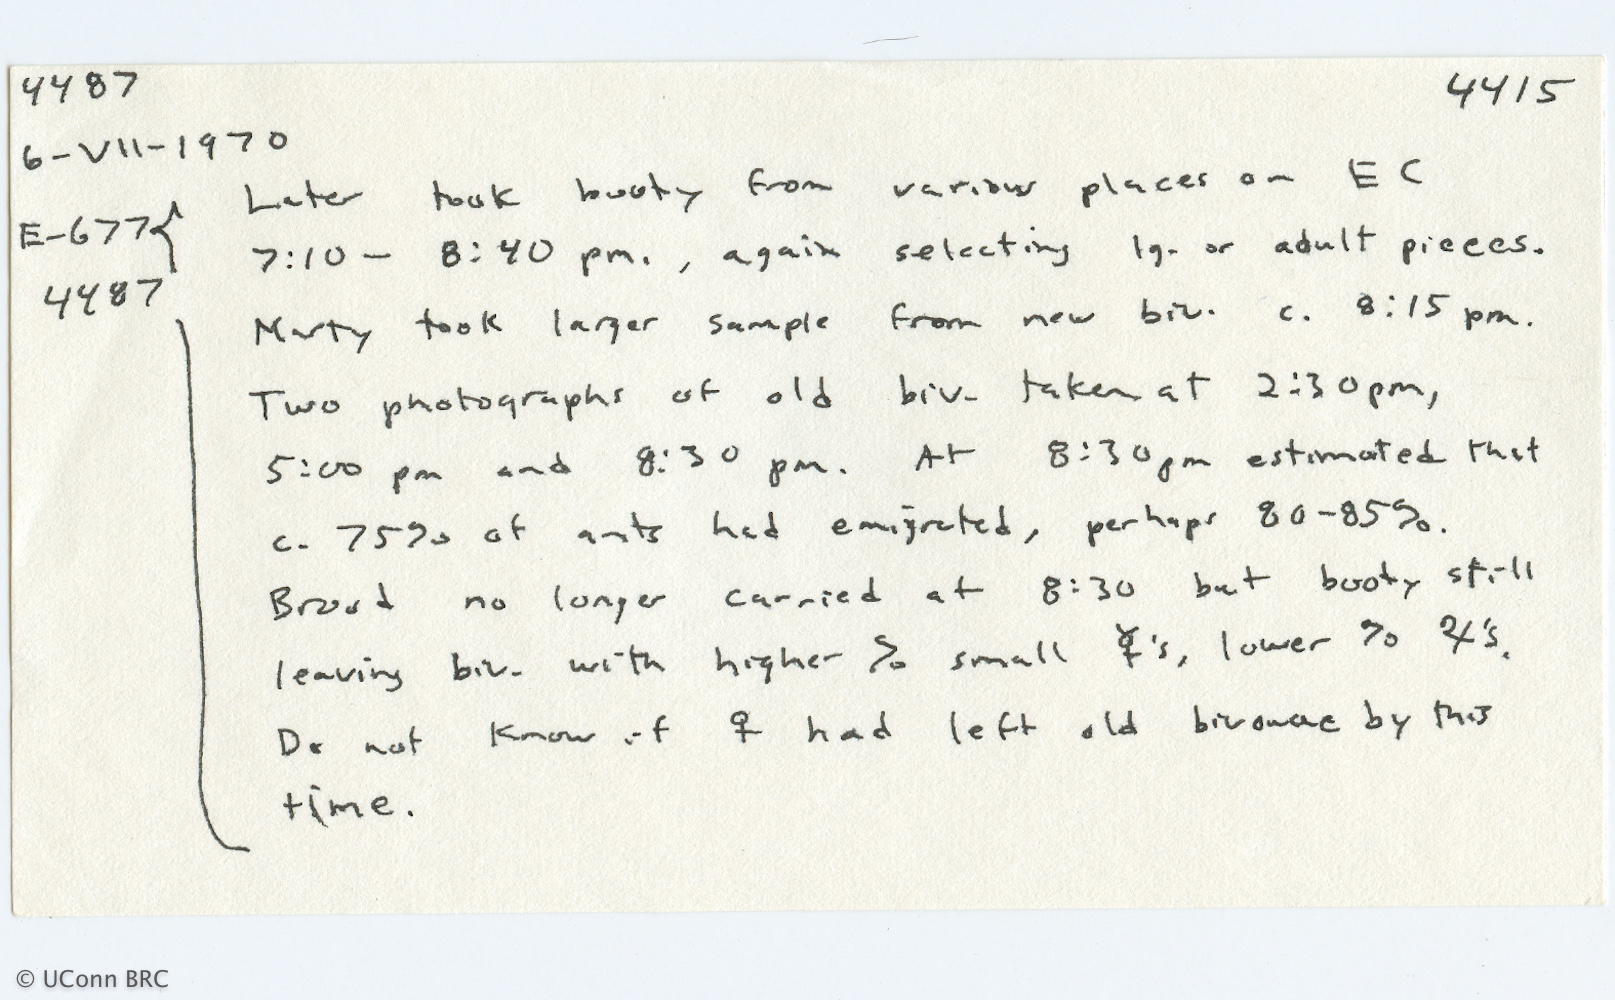 4487
4415
6-VII-1970
E-677 { Later took booty from various places on EC
7:10 - 8:40 pm., again selecting lg. or adult pieces.
4487
Marty took larger sample from new biv. c. 8:15 pm.
Two photographs of old biv. taken at 2:30 pm,
5:00 pm and 8:30 pm. At 8:30 pm estimated that
c. 75% of ants had emigrated, perhaps 80-85%.
Brood no longer carried at 8:30 but booty still
leaving biv. with higher % small ☿'s, lower % ♃'s.
Do not know if ♀ had left old bivouac by this
time.
© UConn BRC